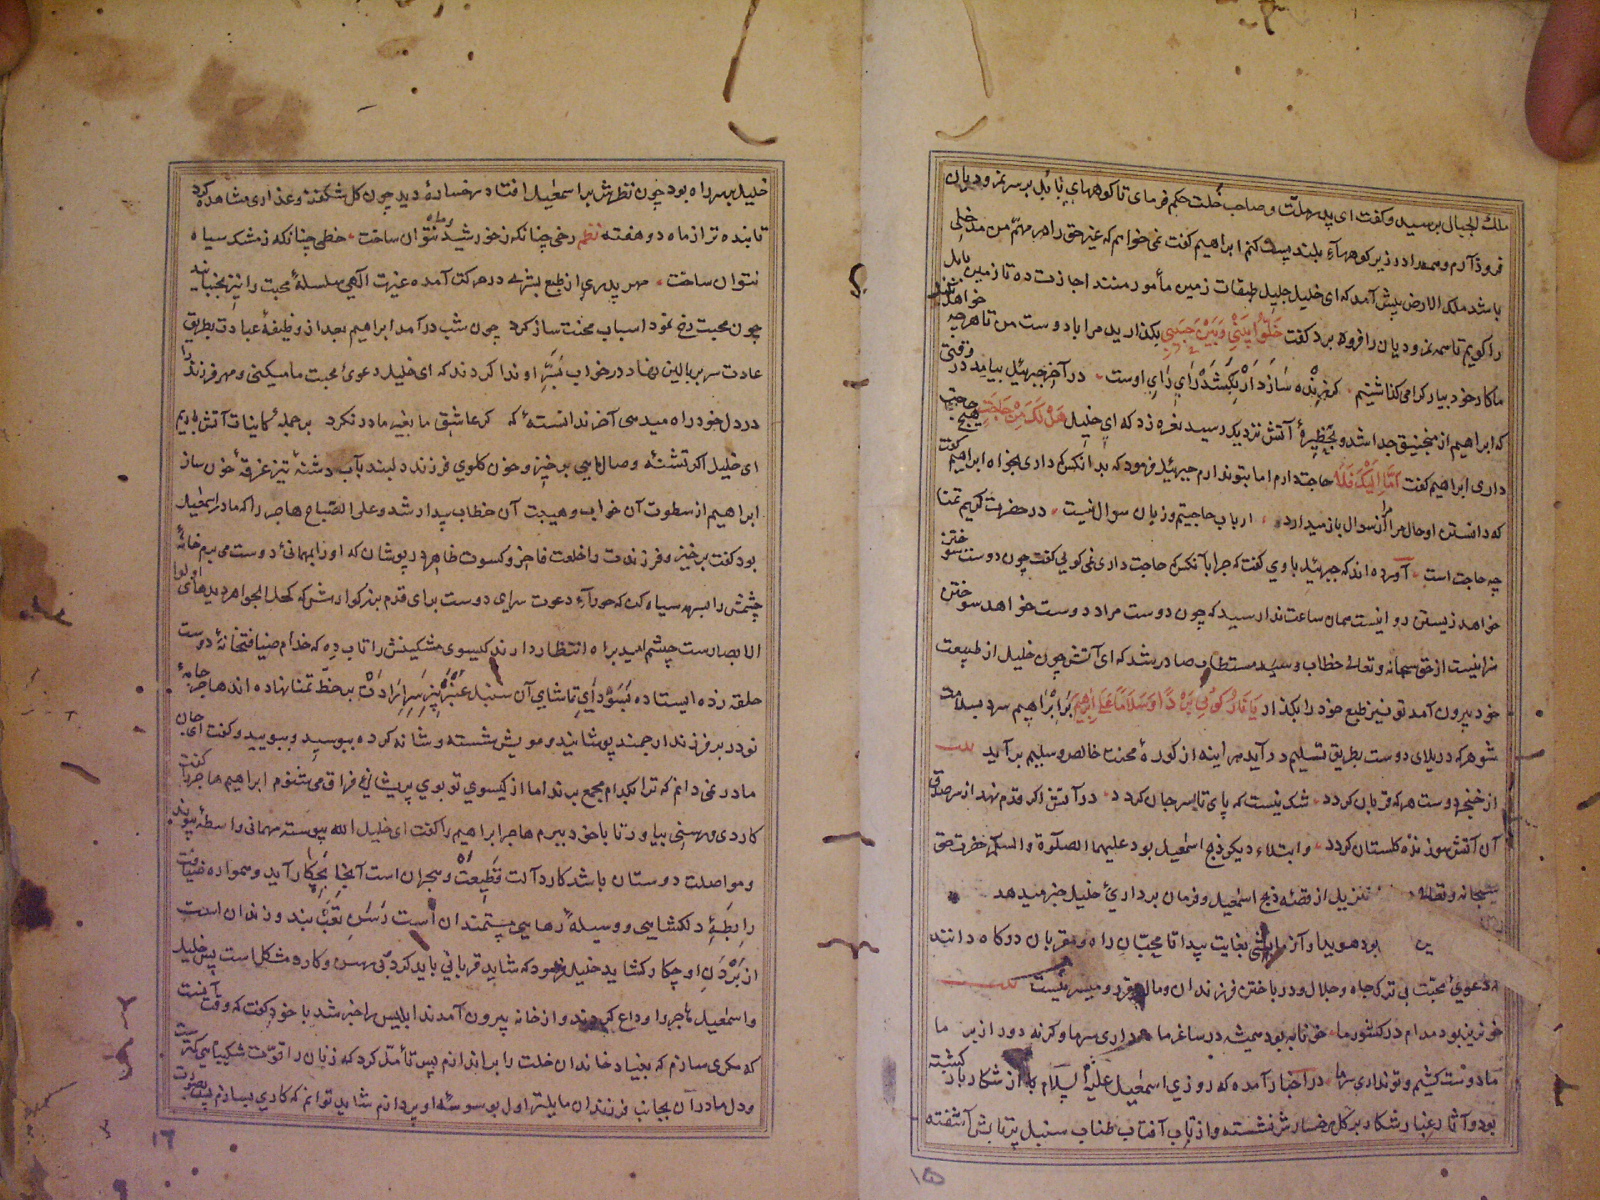 ملك الجبال برسید و گفت ای پدر ملت و صاحب خلت حکم فرمای تا کوههای بابل بر سر نمرودیان
فرود آرم و همه را در زیر کوهها بلند پست کنم ابراهیم گفت نمی خواهم که غیر حق را در مهم من مدخلی
باشد ملك الارض پیش آمد که ای خلیل جلیل طبقات زمین مأمور منند اجازت ده تا زمین بابل
را گویم تا همه نمرودیان را فرو برد گفت خَلّوُا بَیْنِی وَبَیْنَ حَبیبِی بگذارید مرا با دوست من تا هر چه خواهد کند
ما کار خود بیار گرامی گذاشتیم گر زنده سازد ار بکشد رای رای اوست در آخر جبرئیل بیامد در وقتی
که ابراهیم از منجنیق جدا شد و بحظیرهٔ آتش نزدیك رسید نعره زد که ای خلیل هَلْ لَكَ مِنْ حَاجَتٍ هیچ حاجت
داری ابراهیم گفت اَمّا اِلَیْكَ فَلا حاجت دارم اما بتو ندارم جبرئیل فرمود که بدانکس که داری بخواه ابراهیم گفت
که دانستن او حال مرا از سوال باز میدارد ارباب حاجتیم و زبان سوال نیست در حضرت کریم تمنا
چه حاجت است آورده اند که جبرئیل باوی گفت که چرا بآنکس که حاجت داری نمی گویی گفت چون دوست سوختن
خواهد زیستن روا نیست همان ساعت ندا رسید که چون دوست مراد دوست خواهد سوختن
سزا نیست از حق سبحانه و تعالی خطاب وسید مستطاب صادر شد که ای آتش چون خلیل از طبیعت
خود بیرون آمد تو نیز طبع خود را بگذار یَا نَارُ كُونِي بَرْدًا وَسَلَامًا عَلَى إِبْرَاهِيمَ برابراهیم سرد بسلامت
شو هر که در بلای دوست بطریق تسلیم در آید هر اینه از کورهٔ محنت خالص و سلیم بر آید بیت
از خنجر دوست هر که قربان گردد شك نیست که پای تا بسر جان گردد در آتش اگر قدم نهد از سر صدق
آن آتش سوزنده گلستان گردد و ابتلاء دیگر ذبح اسمعیل بود علیهما الصلوة والسلام حضرت حق
سبحانه و تعالی تنزیل از قصهٔ ذبح اسمعیل و فرمان برداری خلیل خبر میدهد
بود هویدا و آزمایشی بغایت پیدا تا محبّان راه و مقربان درگاه دانند
که دعوی محبت بی ترك جاه و جلال و در باختن فرزندان و مال میسر نیست بیت
خونریز بود مدام در کشور ما خونابه بود همیشه در ساغر ما داری سر ما وگرنه دور از بر ما
ما دوست کشیم و تو نداری سر ما در اخبار آمده که روزی اسمعیل علیه السلام از شکار باز گشته
بود و آثار غبار شکار بر گل رخسارش نشسته و از تاب آفتاب طناب سنبل پرتابش آشفته
۱۵
خلیل بر سر راه بود چون نظرش بر اسمعیل افتاد رخسارهٔ دید چون گل شکفته و عذاری مشاهده کرد
تابنده تر از ماه دو هفته نظم رخی چنانکه ز خورشید و ماه نتوان ساخت خطی چنانکه ز مشك سیاه
نتوان ساخت مهر پدری از طبع بشری در حرکت آمده غیرت الهی سلسلهٔ محبت را نیز بجنبانید
چون محبت رخ نمود اسباب محنت ساز کرد چون شب در آمد ابراهیم بعد از وظیفهٔ عبادت بطریق
عادت سر بر بالین نهاد در خواب او ندا کردند که ای خلیل دعوی محبت ما میکنی و مهر فرزند را
در دل خود راه میدهی آخر ندانستهٔ که گر عاشق ما بغیر ما در نگرد بر جملهٔ کاینات آتش باریم
ای خلیل اگر تشنهٔ وصال مایی بر خیز و خون گلوی فرزند دلبند بآب دشنهٔ تیز غرقهٔ خون ساز
ابراهیم از سطوت آن خواب و هیبت آن خطاب بیدار شد و علی الصباح هاجر را که مادر اسمعیل
بود گفت برخیز و فرزندت را خلعت فاخر و کسوت ظاهر در پوشان که او را بمهمانی دوست می برم خانهٔ
چشمش را بسرمه سیاه کن که حورآء دعوت سرای دوست برای قدم بزرگوارش که کحل الجواهر دیدهای اولوا
الابصارست چشم امید براه انتظار دارند گیسوی مشکینش را تاب ده که خدام ضیافتخانهٔ دوست
حلقه زده ایستاده بسودای تماشای آن سنبل عنبر بیز سر ارادت بر خط تمنا نهاده اند هاجر جامهٔ
نو در بر فرزند ارجمند پوشانید و مویش شسته و شانه کرده ببوسید و ببویید و گفت ای جان
مادر نمی دانم که ترا بکدام مجمع برند اما از گیسوی تو بوی پریشانی فراق می شنوم ابراهیم هاجر را گفت
کاردی و رسنی بیاور تا با خود ببرم هاجر ابراهیم را گفت ای خلیل الله پیوسته مهمانی واسطهٔ پیوند
و مواصلت دوستان باشد کارد آلت قطیعت و هجران است آنجا بچکار آید و همواره ضیافت
رابطهٔ دلگشایی و وسیلهٔ رهایی مستمندان است رسن تعب بند و زندان است
از بردن او چکار گشاید خلیل فرمود که شاید قربانی باید کرد بی رسن و کارد مشکل است پس خلیل
و اسمعیل هاجر را وداع کردند و از خانه بیرون آمدند ابلیس را خبر شد با خود گفت که وقت آنست
که مکری سازم که بنیاد خاندان خلت را براندازم پس تأمل کرد که زنان را قوّت شکیبایی کمترست
و دل مادران بجانب فرزندان مایلتر اول بوسوسهٔ او پردازم شاید توانم که کاری بسازم پس بصورت
۱۶